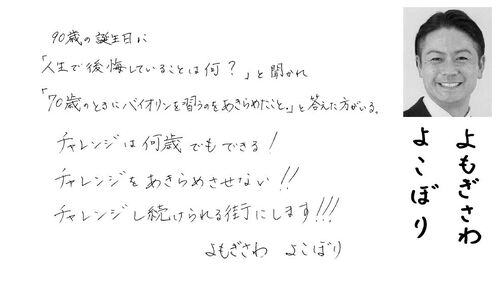 90歳の誕生日に
「人生で後悔していることは何？」と聞かれ
「70歳のときにバイオリンを習うのをあきらめたこと。」と答えた方がいる。
チャレンジは何歳でもできる！
チャレンジをあきらめさせない！！
チャレンジし続けられる街にします！！！
よもぎさわ よこぼり
よもぎさわ
よこぼり